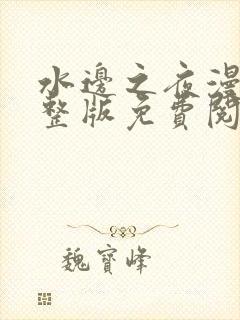 水邊之夜漫
整版免費閱
魏寶峰